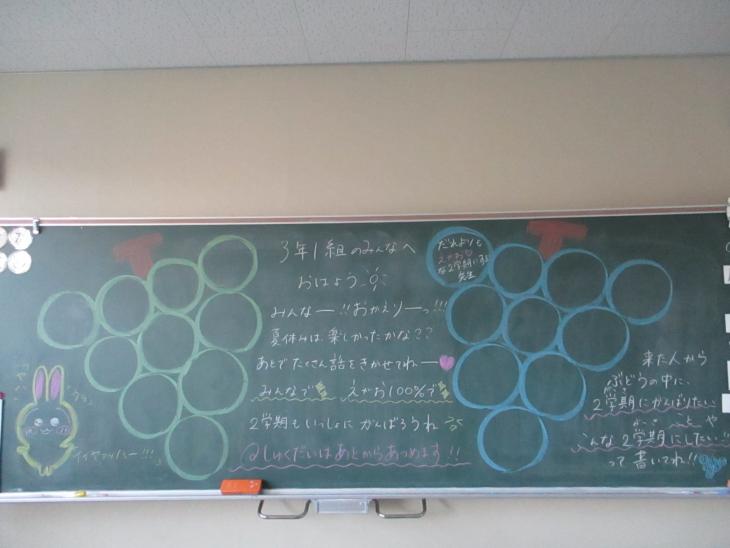 3年1組のみんなへ
おはよう
みんなー!!おかえりーっ!!!
夏休みは楽しかったかな??
あとでたくさん話をきかせてねー
みんなで えがお100%で
2学期もいっしょにがんばろうね
@しゅくだいはあとからあつめます!!
だれよりも
えがお
な2学期にするよ
先生
来た人から
ぶどうの中に、
2学期にがんばりたい
ことや
こんな2学期にしたい!!
って書いてね!!
イイヤッハー!!!